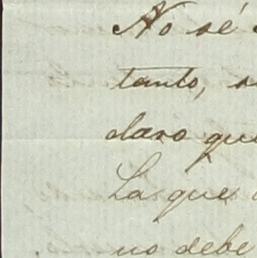 No sé
tanto,
claro que
La que
no debe